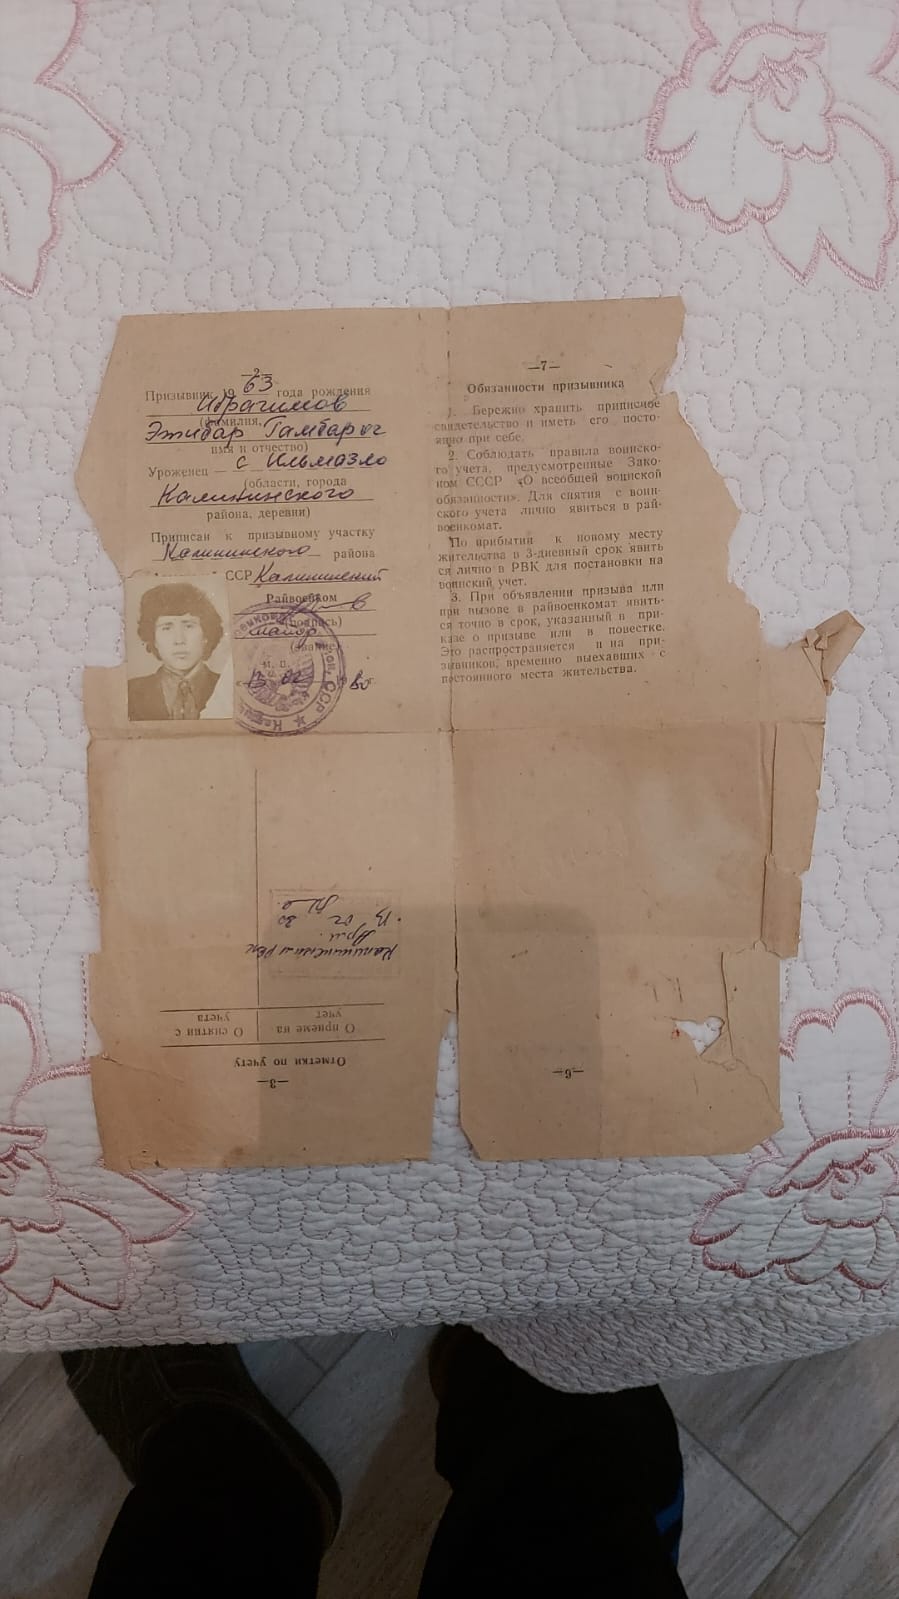 —2—
Призывник 1963 года рождения
Ибрагимов
(фамилия,
Этибар Гамбар ог
имя и отчество)
Уроженец — с Ильмазло
(области, города
Калининского
района, деревни)
Приписан к призывному участку
Калининского района
ССР Калининский
Райвоенком
(подпись)
майор
(звание)
М. П.
«13» 02 1980
—7—
Обязанности призывника
1. Бережно хранить приписное
свидетельство и иметь его посто-
янно при себе.
2. Соблюдать правила воинско-
го учета, предусмотренные Зако-
ном СССР «О всеобщей воинской
обязанности». Для снятия с воин-
ского учета лично явиться в рай-
военкомат.
По прибытии к новому месту
жительства в 3-дневный срок явить
ся лично в РВК для постановки на
воинский учет.
3. При объявлении призыва или
при вызове в райвоенкомат явить-
ся точно в срок, указанный в при-
казе о призыве или в повестке.
Это распространяется и на при-
зывников, временно выехавших с
постоянного места жительства.
—3—
Отметки по учету
О приеме на
учет
О снятии с
учета
Калининский РВК
Арм.
13 02 80
—6—